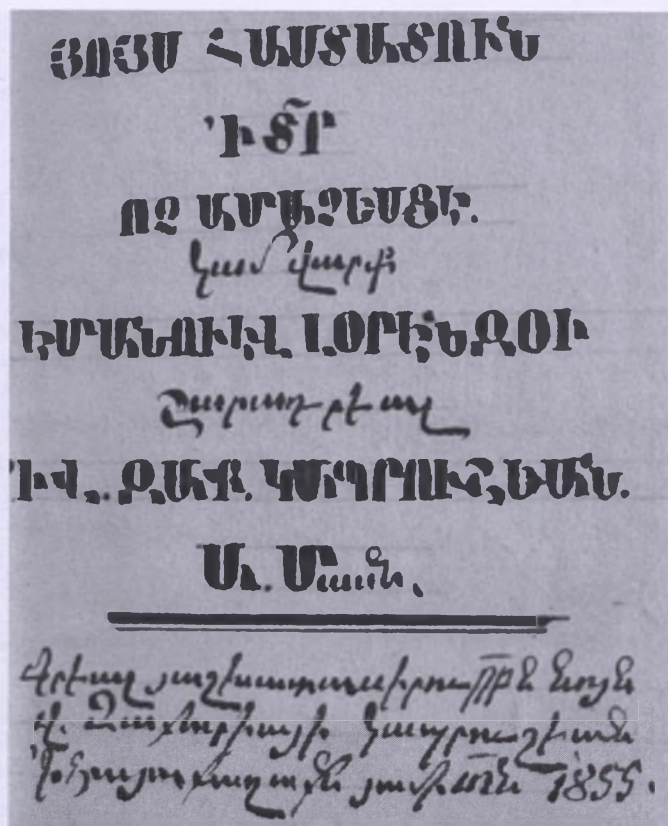 ՅՈՅՍ ՀԱՍՏԱՏՈՒՆ
՚Ի ՏՐ
ՈՉ ԱՄԱՉԵՍՑԷ.
կամ վարք
ԷՄԱՆՈՒԻԷԼ ԼՕՐԷՆԶՕԻ
Շարադրեալ
՚Ի Վ. ԶԱՔ. ԿԱՊՐՈՒՇԵԱՆ.
Ա. Մասն.
Գրեալ յաշխատասիրութենէ նոյն
վ. Զաքարիայի կապրուշեան
1855.